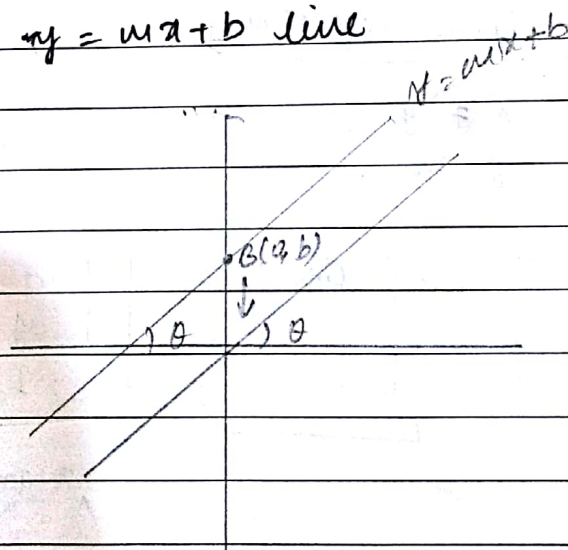 y = mx + b line
y = mx + b
B(0, b)
θ
θ